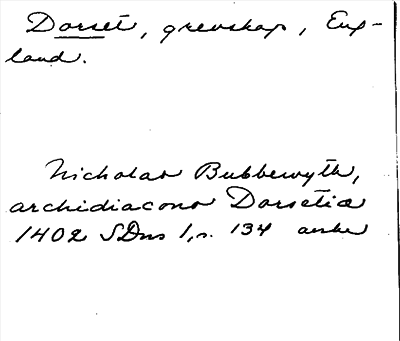 Dorset, grevskap, Eng-
land.
Nicholas Bubbewyth,
archidiacono Dorsetia
1402 SDns 1, s. 134